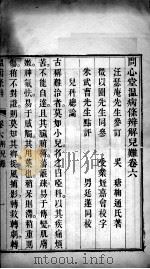 問心堂溫病條辨解兒難卷六
汪瑟庵先生參訂 吳瑭鞠通氏著
徵以園先生同參 受業姪嘉會校字
朱武曹先生點評 男廷蓮同校
兒科總論
古稱難治者莫如小兒名之曰啞科以其疾痛煩
苦不能自達且其臟腑薄藩籬疎易于傳變肌膚
嫩神氣怯易于感觸其用藥也稍呆則滯稍重則
傷稍不對證則莫知其鄉捉風捕影轉救轉劇轉